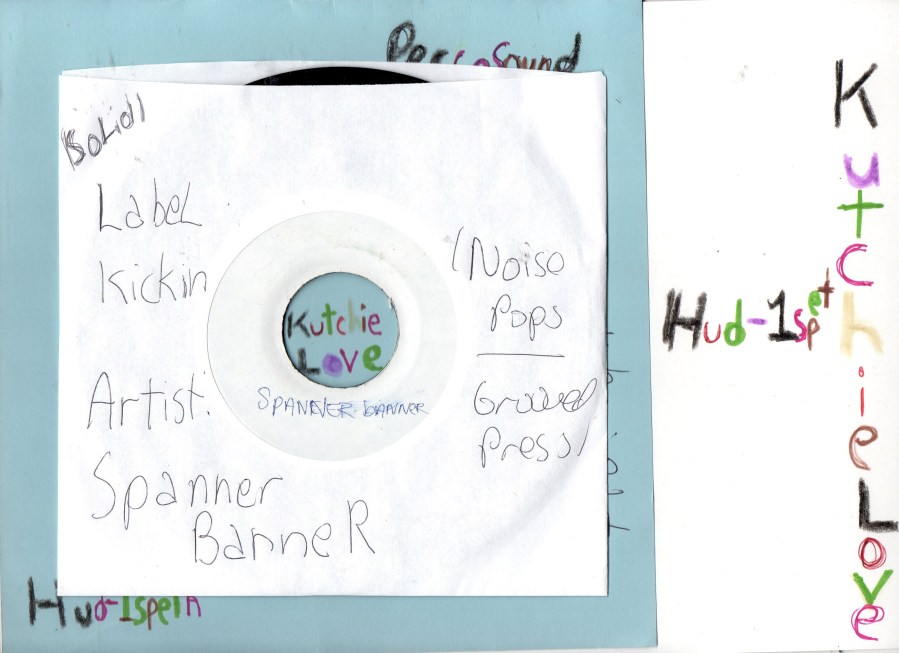 Percosound
Solid/
Label
Kickin
Artist:
Spanner
BanneR
(Noise
Pops
Grooved
Press/
Kutchie
Love
SPANNER BANNER
Hud-1spet
KutchieLove